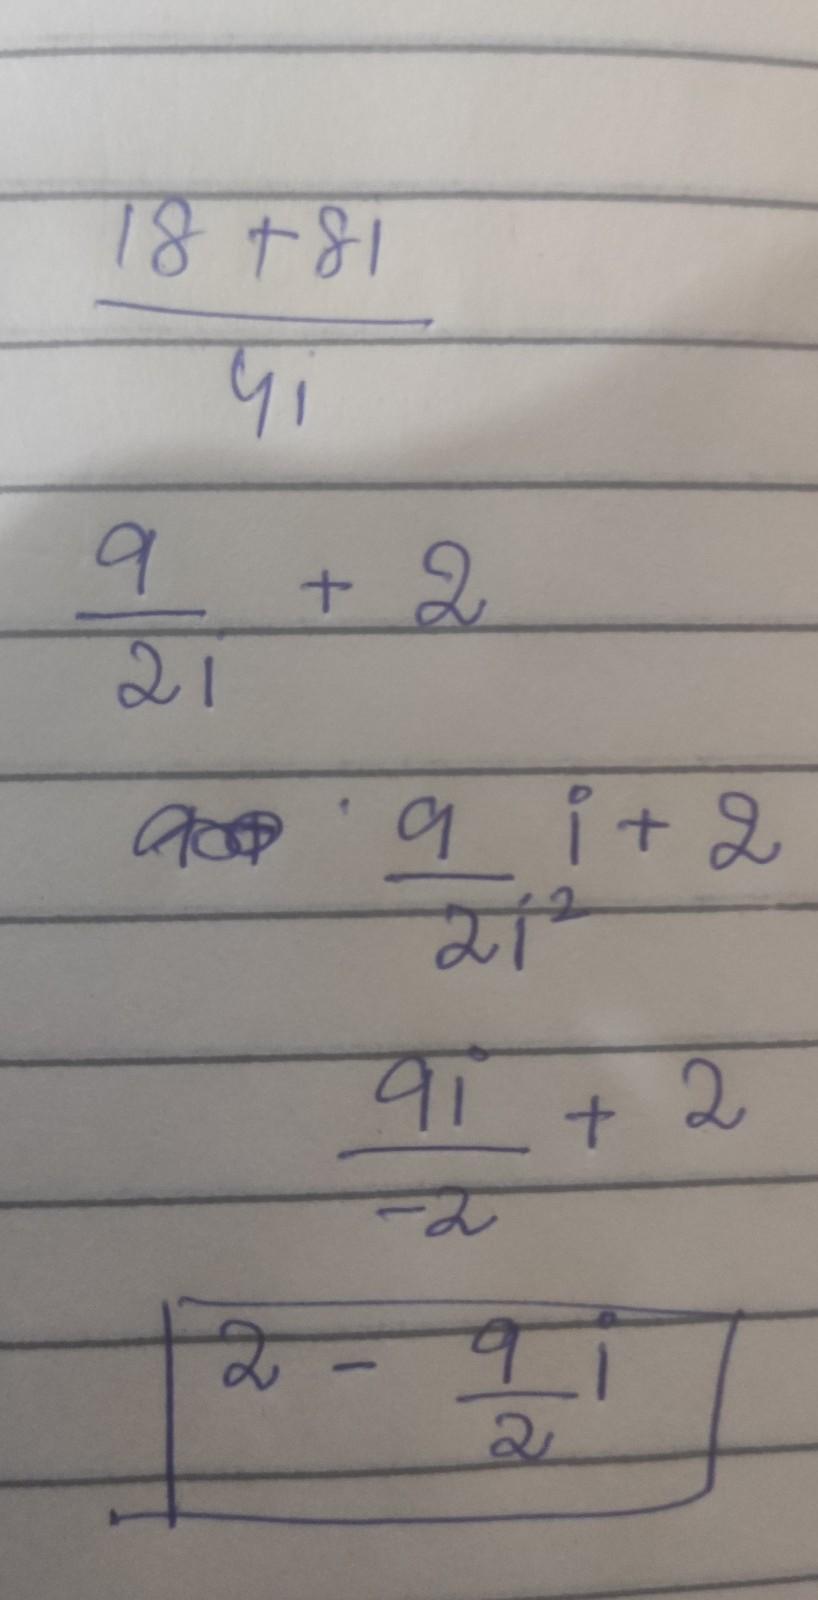 18 + 8i
4i
9/2i + 2
9/2i² i + 2
9i/-2 + 2
2 - 9/2 i